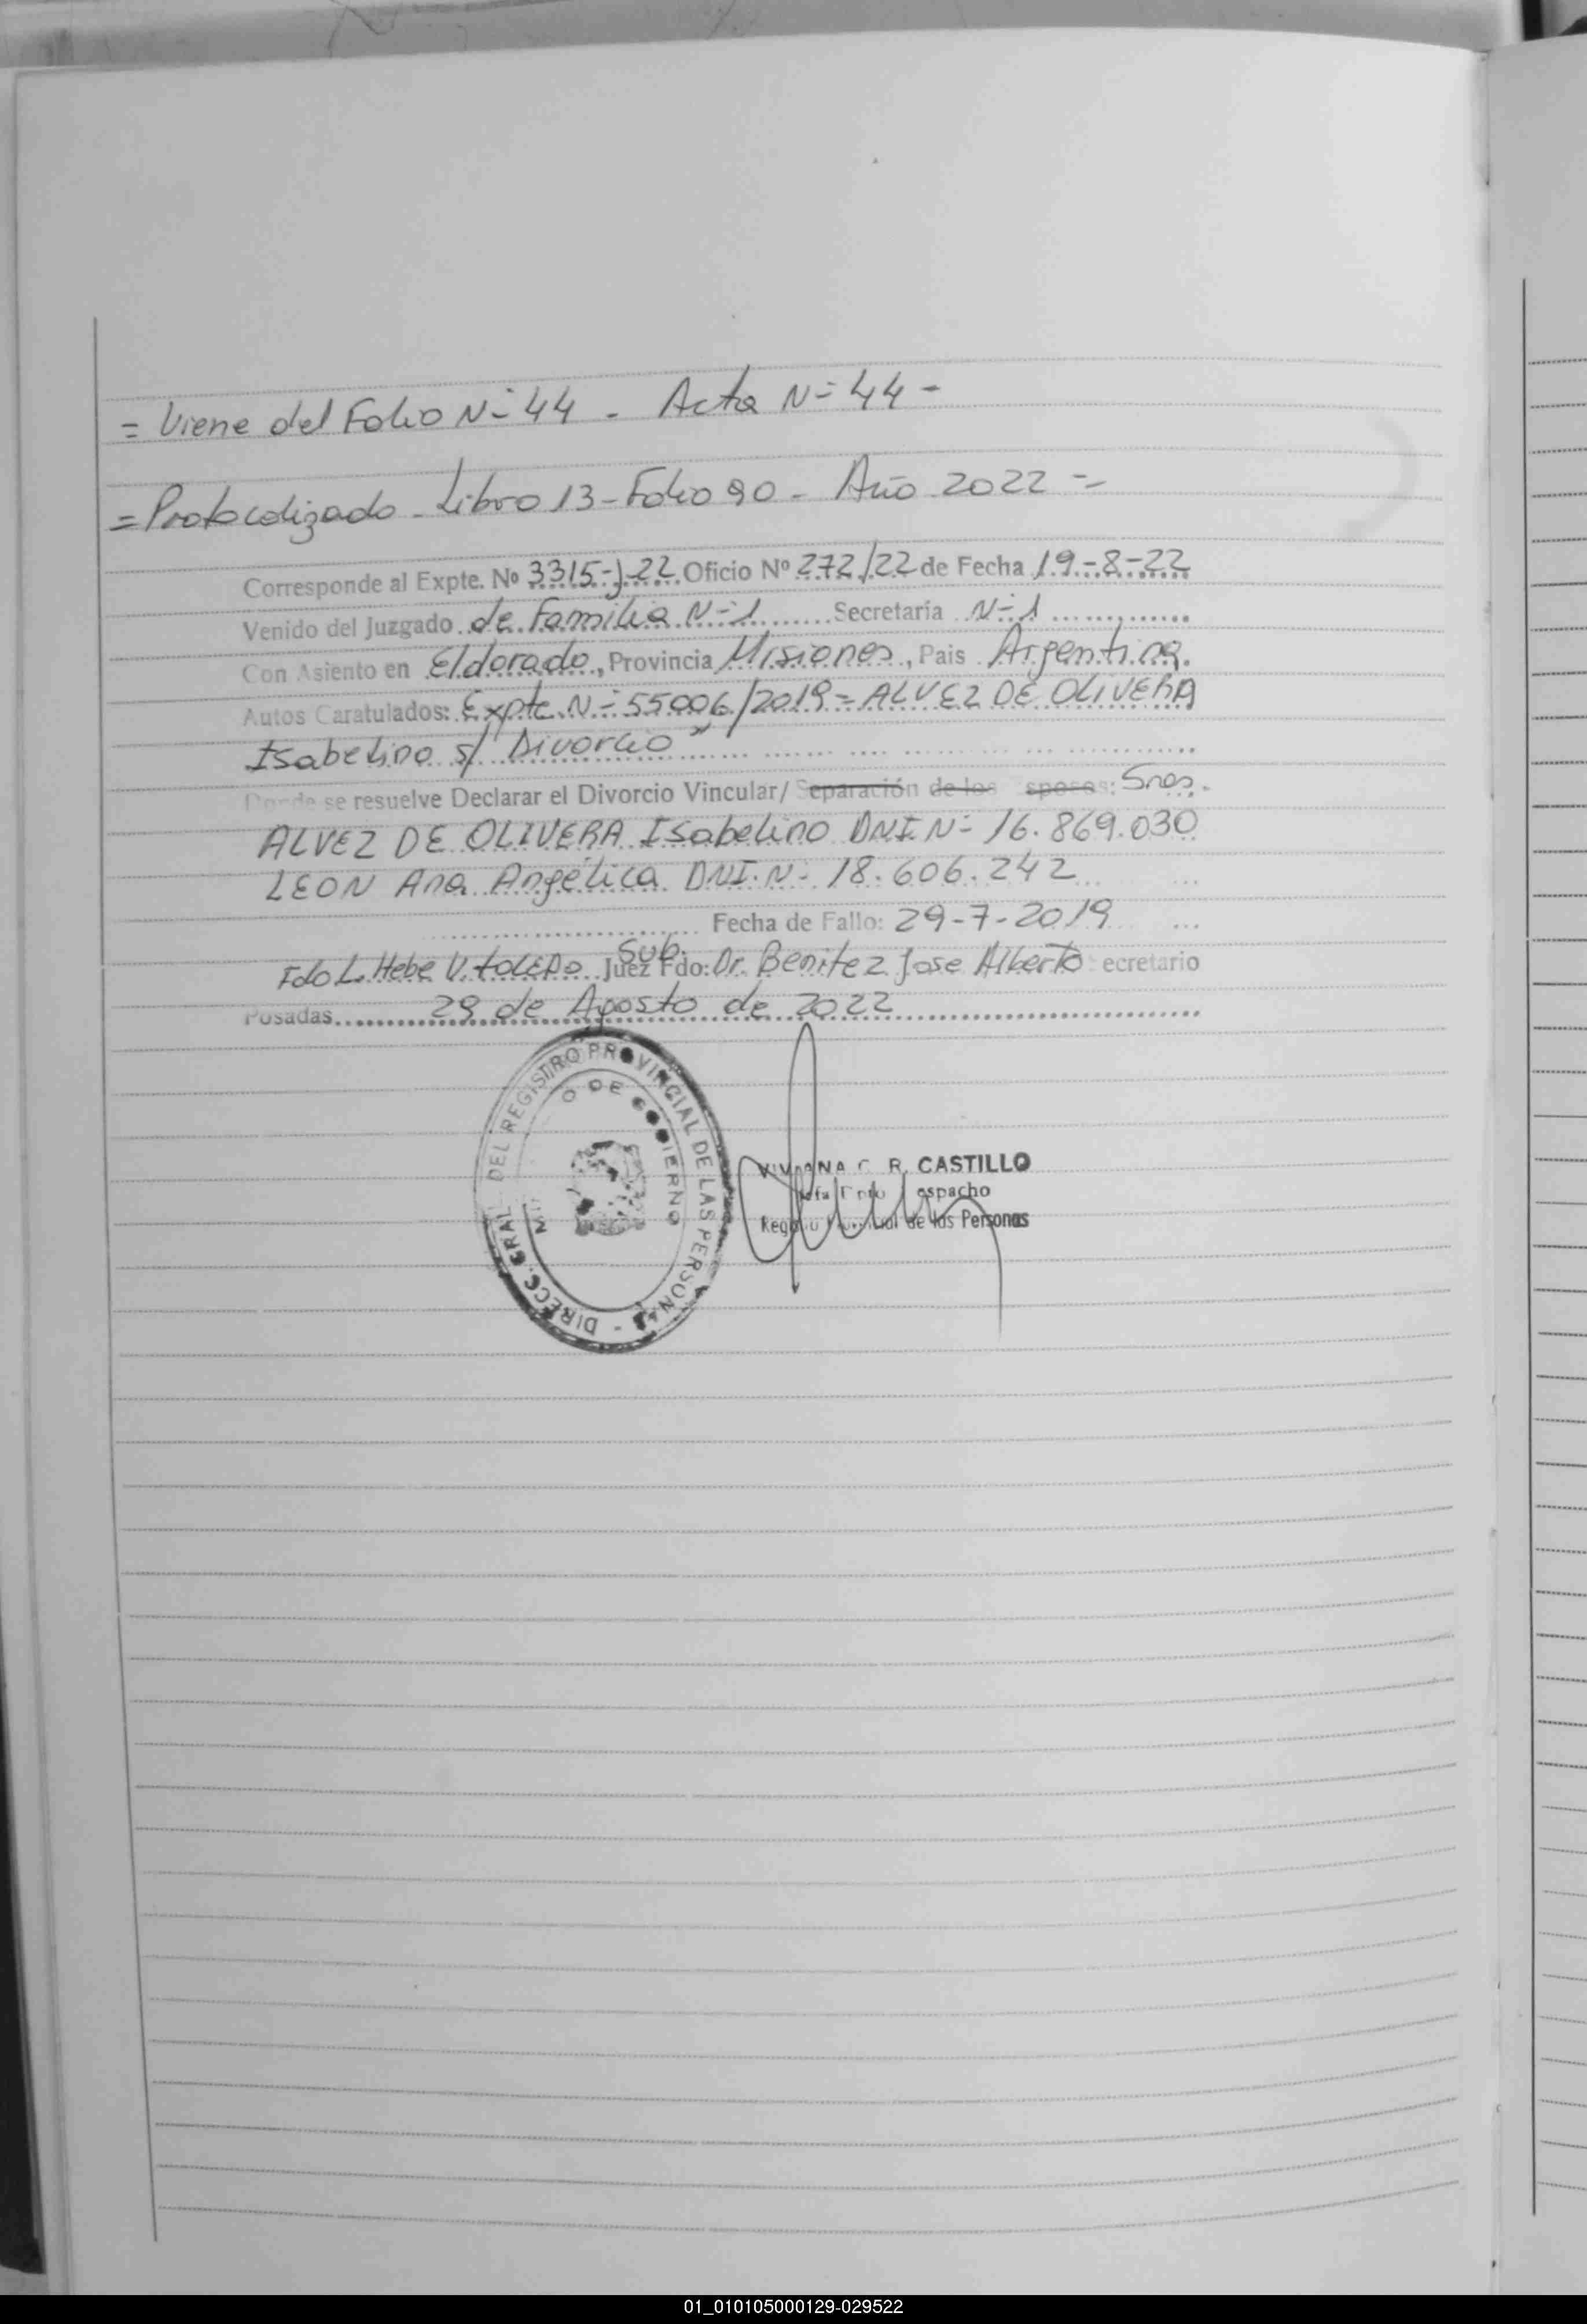 = Viene del Folio N= 44 - Acta N= 44 -
= Protocolizado - Libro 13 - Folio 90 - Año 2022 =
Corresponde al Expte. Nº 3315-J-22 Oficio Nº 272/22 de Fecha 19-8-22
Venido del Juzgado de Familia N=1 Secretaria N=1
Con Asiento en Eldorado, Provincia Misiones, Pais Argentina.
Autos Caratulados: Expte. N= 55006/2019 = ALVEZ DE OLIVERA
Isabelino s/ Divorcio"
Donde se resuelve Declarar el Divorcio Vincular/ Separación de los sposos: Sres.
ALVEZ DE OLIVERA Isabelino DNI N= 16.869.030
LEON Ana Angélica DNI. N= 18.606.242
Fecha de Fallo: 29-7-2019
Sub.
Fdo L. Hebe V. TOLEDO Juez Fdo: Dr. Benitez Jose Alberto ecretario
Posadas 29 de Agosto de 2022
DIRECC. GRAL. DEL REGISTRO PROVINCIAL DE LAS PERSONAS -
O DE GOBIERNO
VIVIANA R. CASTILLO
espacho
de las Personas
01_010105000129-029522